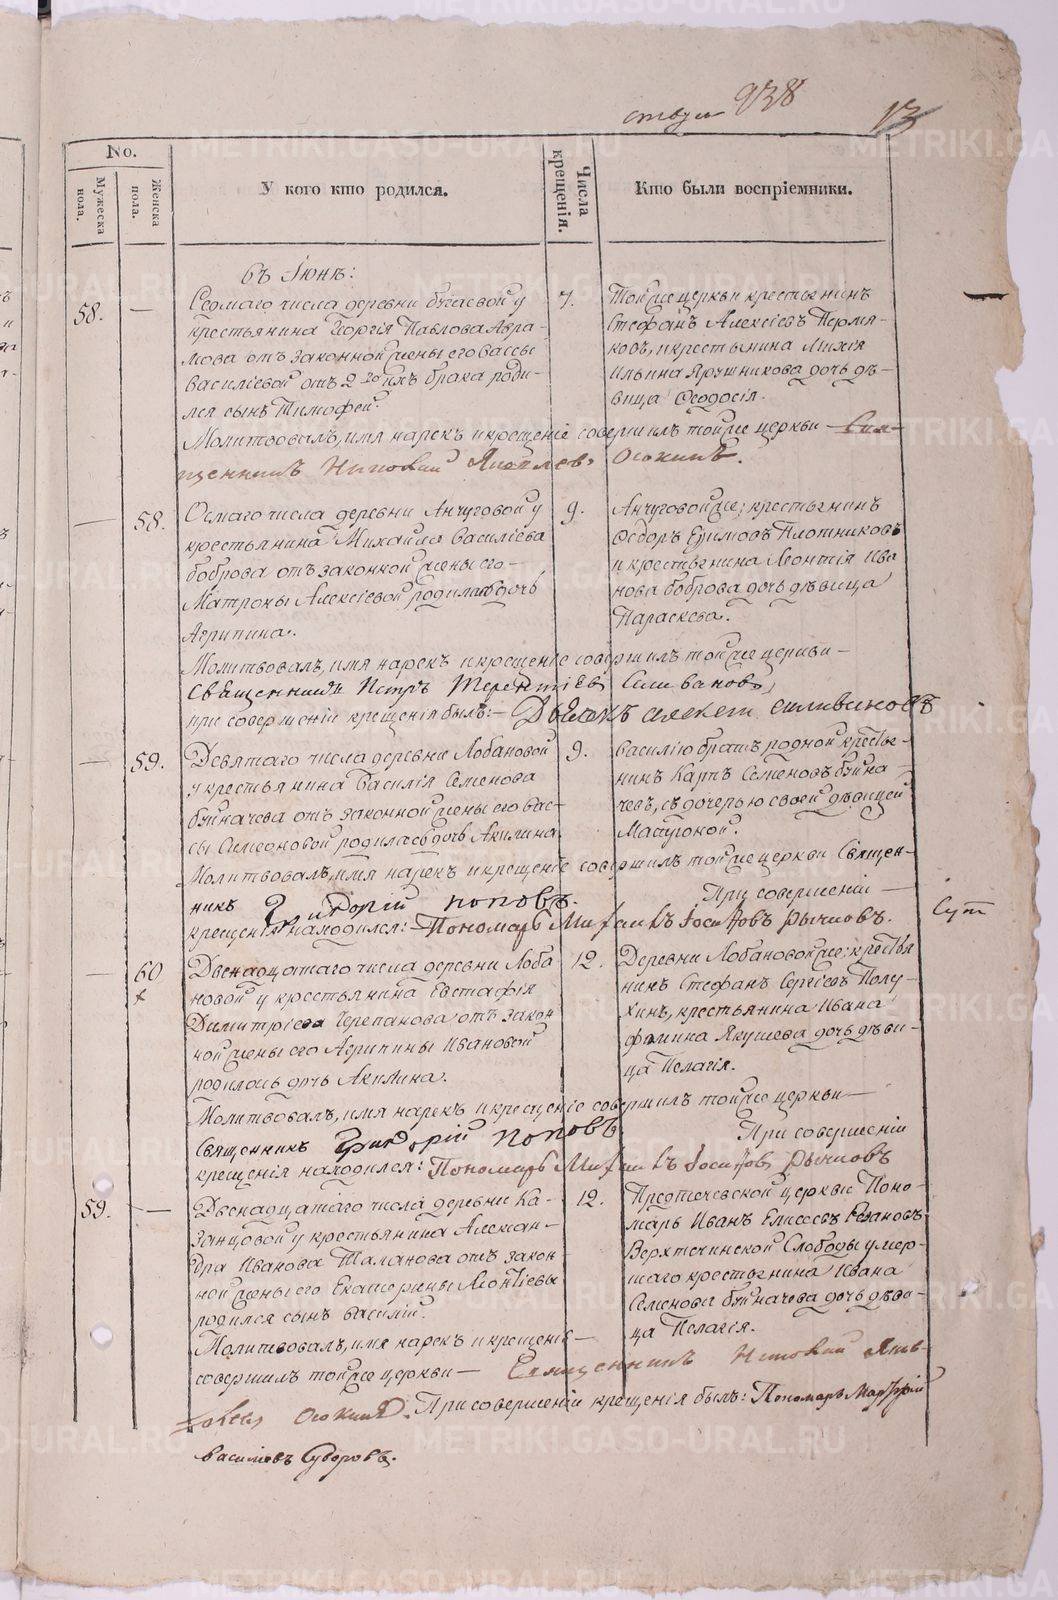 938
13
No.
Мужеска пола.
Женска пола.
У кого кто родился.
Числа крещенія.
Кто были воспріемники.
Въ Іюнѣ:
58. —
Седмаго числа деревни Бугаевой у
крестьянина Георгія Павлова Авра-
мова отъ законной жены его Вассы
Василіевой отъ 2го ихъ брака роди-
лся сынъ Тимофей.
7.
Той же церкви крестьянинъ
Стефанъ Алексіевъ Пермя-
ковъ, и крестьянина
Ильина Ярушникова дочь дѣ-
вица Ѳеодосія.
Молитвовалъ, имя нарекъ и крещеніе совершилъ той же церкви — Свя-
щенникъ Яковлевъ Осокинъ.
— 58.
Осмаго числа деревни Анчуговой у
крестьянина Михаила Василіева
Боброва отъ законной жены его
Матроны Алексіевой родилась дочь
Агрипина.
9.
Анчуговой же; крестьянинъ
Ѳедоръ Ефимовъ Плотниковъ
и крестьянина Леонтія Ива
нова Боброва дочь дѣвица
Параскева.
Молитвовалъ, имя нарекъ и крещеніе совершилъ той же церкви —
Священникъ Петръ Терентіевъ Селивановъ,
при совершеніи крещенія былъ: — Дьячекъ
— 59.
Девятаго числа деревни Лобановой
у крестьянина Василія Семенова
Буйначева отъ законной жены его Вас-
сы Симеоновой родилась дочь Акилина.
9.
Василію братъ родной крестья-
нинъ Карпъ Семеновъ Буйна-
чевъ, съ дочерью своей дѣвицей
Матроной.
Молитвовалъ, имя нарекъ и крещеніе совершилъ той же церкви Священ-
никъ Григорій Поповъ. При совершеніи —
крещенія находился: Пономарь Михаилъ Іосифовъ Рычковъ.
— 60
Двенадцатаго числа деревни Лоба
новой у крестьянина Евстафія
Димитріева Черепанова отъ закон
ной жены его Агрипины Ивановой
родилась дочь Акилина.
12.
Деревни Лобановой же; крестья
нинъ Стефанъ Сергіевъ Полу-
хинъ, крестьянина Ивана
Фомина Якушева дочь дѣви-
ца Пелагія.
Молитвовалъ, имя нарекъ и крещеніе совершилъ той же церкви —
Священникъ Григорій Поповъ При совершеніи
крещенія находился: Пономарь Михаилъ Іосифовъ Рычковъ
59. —
Двенадцатаго числа деревни Ка-
занцовой у крестьянина Алексан-
дра Иванова Таланова отъ закон-
ной жены его Екатерины Леонтіевы
родился сынъ Василій.
12.
Предтечевской церкви Поно-
марь Иванъ Елисеевъ
Верхтечинской Слободы умер-
шаго крестьянина Ивана
Семенова Буйначева дочь дѣви-
ца Пелагія.
Молитвовалъ, имя нарекъ и крещеніе —
совершилъ той же церкви — Священникъ Яков-
левъ Осокинъ. При совершеніи крещенія былъ: Пономарь
Василіевъ Суворовъ.
METRIKI.GASO-URAL.RU